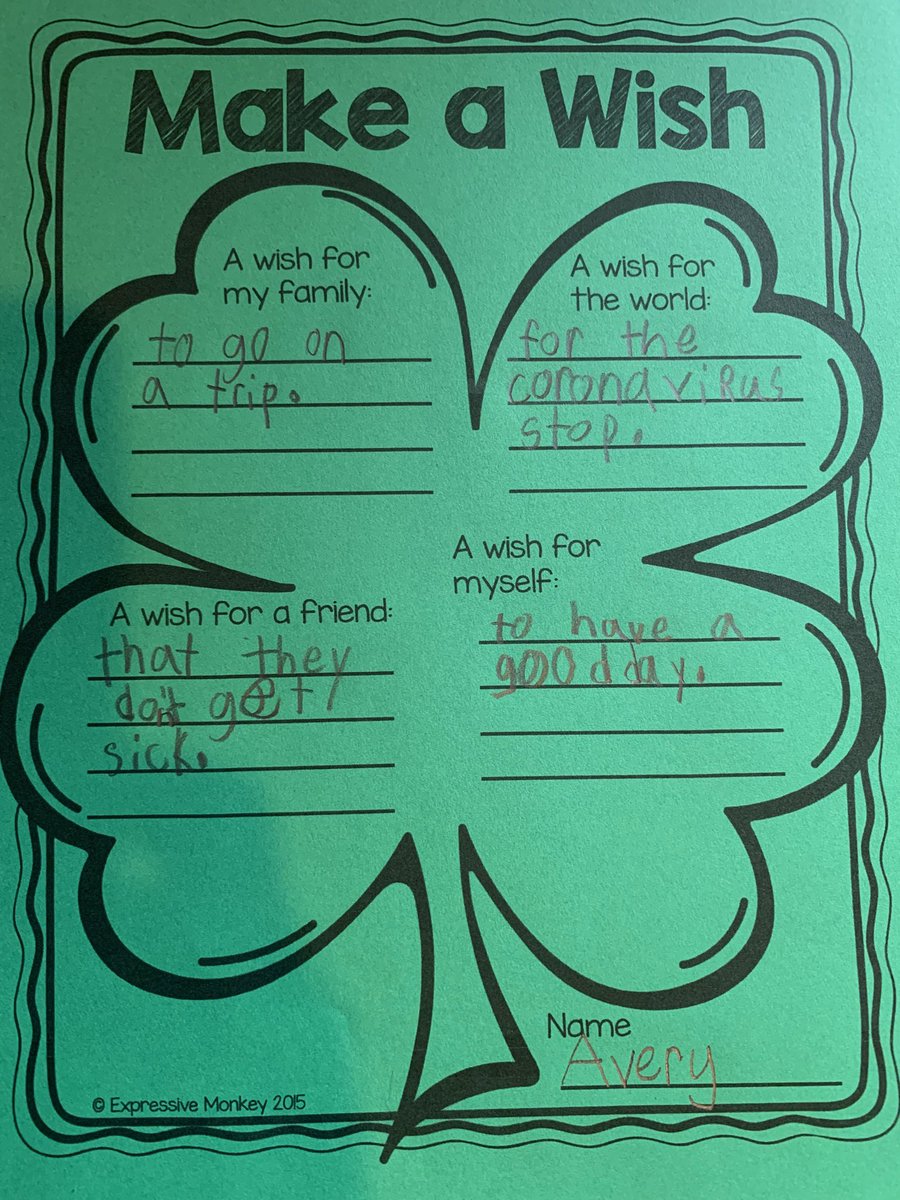 Make a Wish
A wish for
my family:
to go on
a trip.
A wish for
the world:
for the
coronavirus
stop.
A wish for a friend:
that they
don't get
sick.
A wish for
myself:
to have a
good day.
Name
Avery
© Expressive Monkey 2015